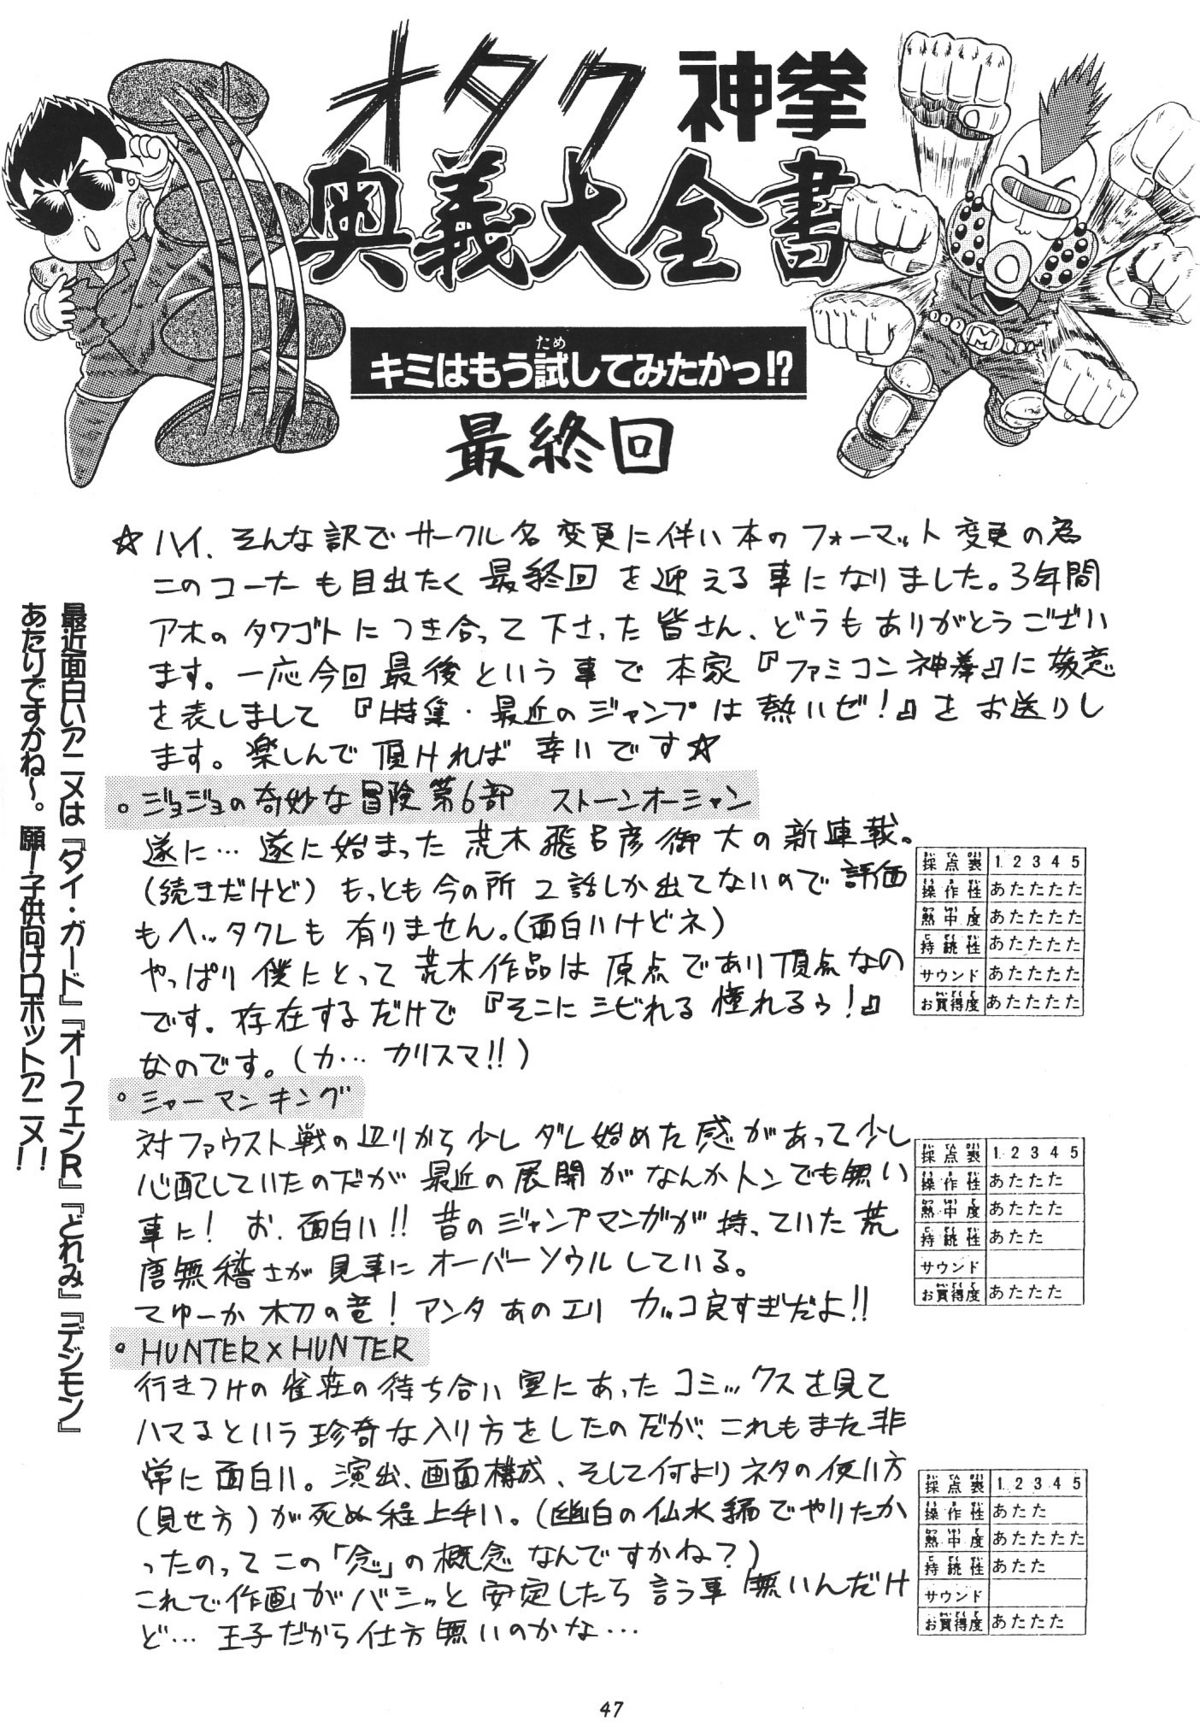 オタク神拳
奥義大全書
ため
キミはもう試してみたかっ!?
最終回
☆ハイ、そんな訳でサークル名変更に伴い本のフォーマット変更の為
このコーナーも目出たく最終回を迎える事になりました。3年間
アホのタワゴトにつき合って下さった皆さん、どうもありがとうござい
ます。一応今回最後という事で本家『ファミコン神拳』に敬意
を表しまして『特集・最近のジャンプは熱いゼ!』をお送りし
ます。楽しんで頂ければ幸いです☆
。ジョジョの奇妙な冒険第6部 ストーンオーシャン
遂に…遂に始まった荒木飛呂彦御大の新連載。
(続きだけど)もっとも今の所2話しか出てないので評価
もヘッタクレも有りません。(面白いけどネ)
やっぱり僕にとって荒木作品は原点であり頂点なの
です。存在するだけで『そこにシビれる憧れるゥ!』
なのです。(カ…カリスマ!!)
採点表 1 2 3 4 5
操作性 あたたたた
熱中度 あたたたた
持続性 あたたたた
サウンド あたたたた
お買得度 あたたたた
。シャーマンキング
対ファウスト戦の辺りから少しダレ始めた感があって少し
心配していたのだが最近の展開がなんかトンでも無い
事に!お、面白い!!昔のジャンプマンガが持っていた荒
唐無稽さが見事にオーバーソウルしている。
てゆーか木刀の竜!アンタあのエリ カッコ良すぎだよ!!
採点表 1 2 3 4 5
操作性 あたたた
熱中度 あたたた
持続性 あたた
サウンド
お買得度 あたたた
。HUNTER×HUNTER
行きつけの雀荘の待ち合い室にあったコミックスを見て
ハマるという珍奇な入り方をしたのだが、これもまた非
常に面白い。演出、画面構成、そして何よりネタの使い方
(見せ方)が死ぬ程上手い。(幽白の仙水編でやりたか
ったのってこの「念」の概念なんですかね?)
これで作画がバシッと安定したら言う事無いんだけ
ど…王子だから仕方無いのかな…
採点表 1 2 3 4 5
操作性 あたた
熱中度 あたたたた
持続性 あたた
サウンド
お買得度 あたたた
最近面白いアニメは『ダイ・ガード』『オーフェンR』『どれみ』『デジモン』
あたりですかね〜。願!子供向けロボットアニメ!!
47